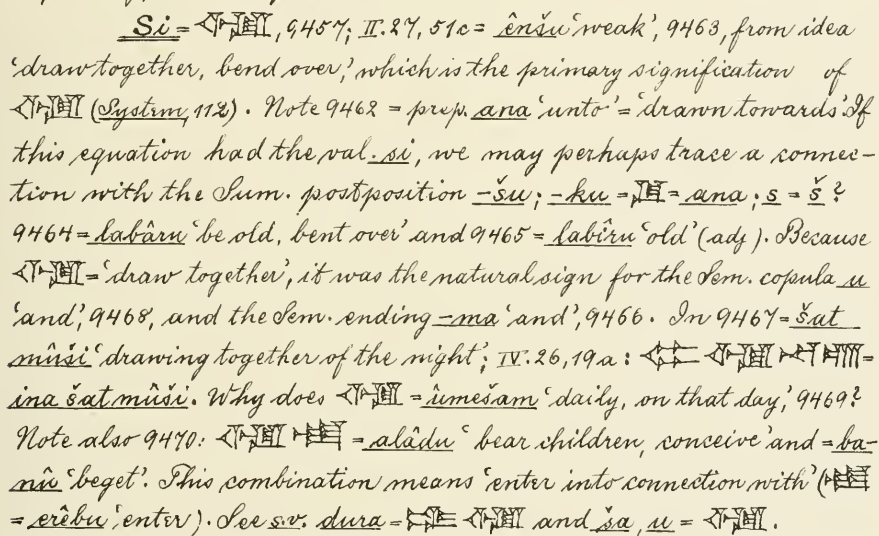 Si = , 9457; II. 27, 51c = ênšu 'weak', 9463, from idea
'draw together, bend over,' which is the primary signification of
(System, 112). Note 9462 = prep. ana 'unto' = 'drawn towards'. If
this equation had the val. si, we may perhaps trace a connec-
tion with the Sum. postposition -šu; -ku = = ana; s = š?
9464 = labâru 'be old, bent over' and 9465 = labîru 'old' (adj). Because
= 'draw together', it was the natural sign for the Sem. copula u
'and', 9468, and the Sem. ending -ma 'and', 9466. In 9467 = šat
mûši 'drawing together of the night'; IV. 26, 19a: =
ina šat mûši. Why does = ûmešam 'daily, on that day,' 9469?
Note also 9470: = alâdu 'bear children, conceive' and = ba-
nû 'beget'. This combination means 'enter into connection with' (
= erêbu 'enter'). See s.v. dura = and ša, u = .